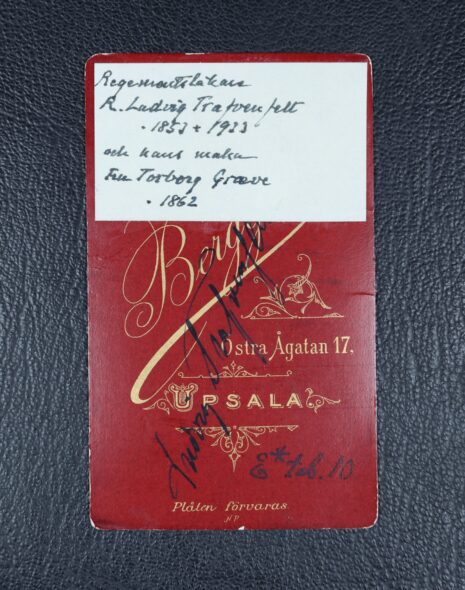 Regementsläkare
R. Ludvig Trafvenfelt
· 1853 + 1933
och hans maka
Fru Torborg Græve
· 1862
Berg
Ludvig Trafvenfelt
Östra Ågatan 17,
UPSALA
E* tab. 10
Plåten förvaras.
N.P.